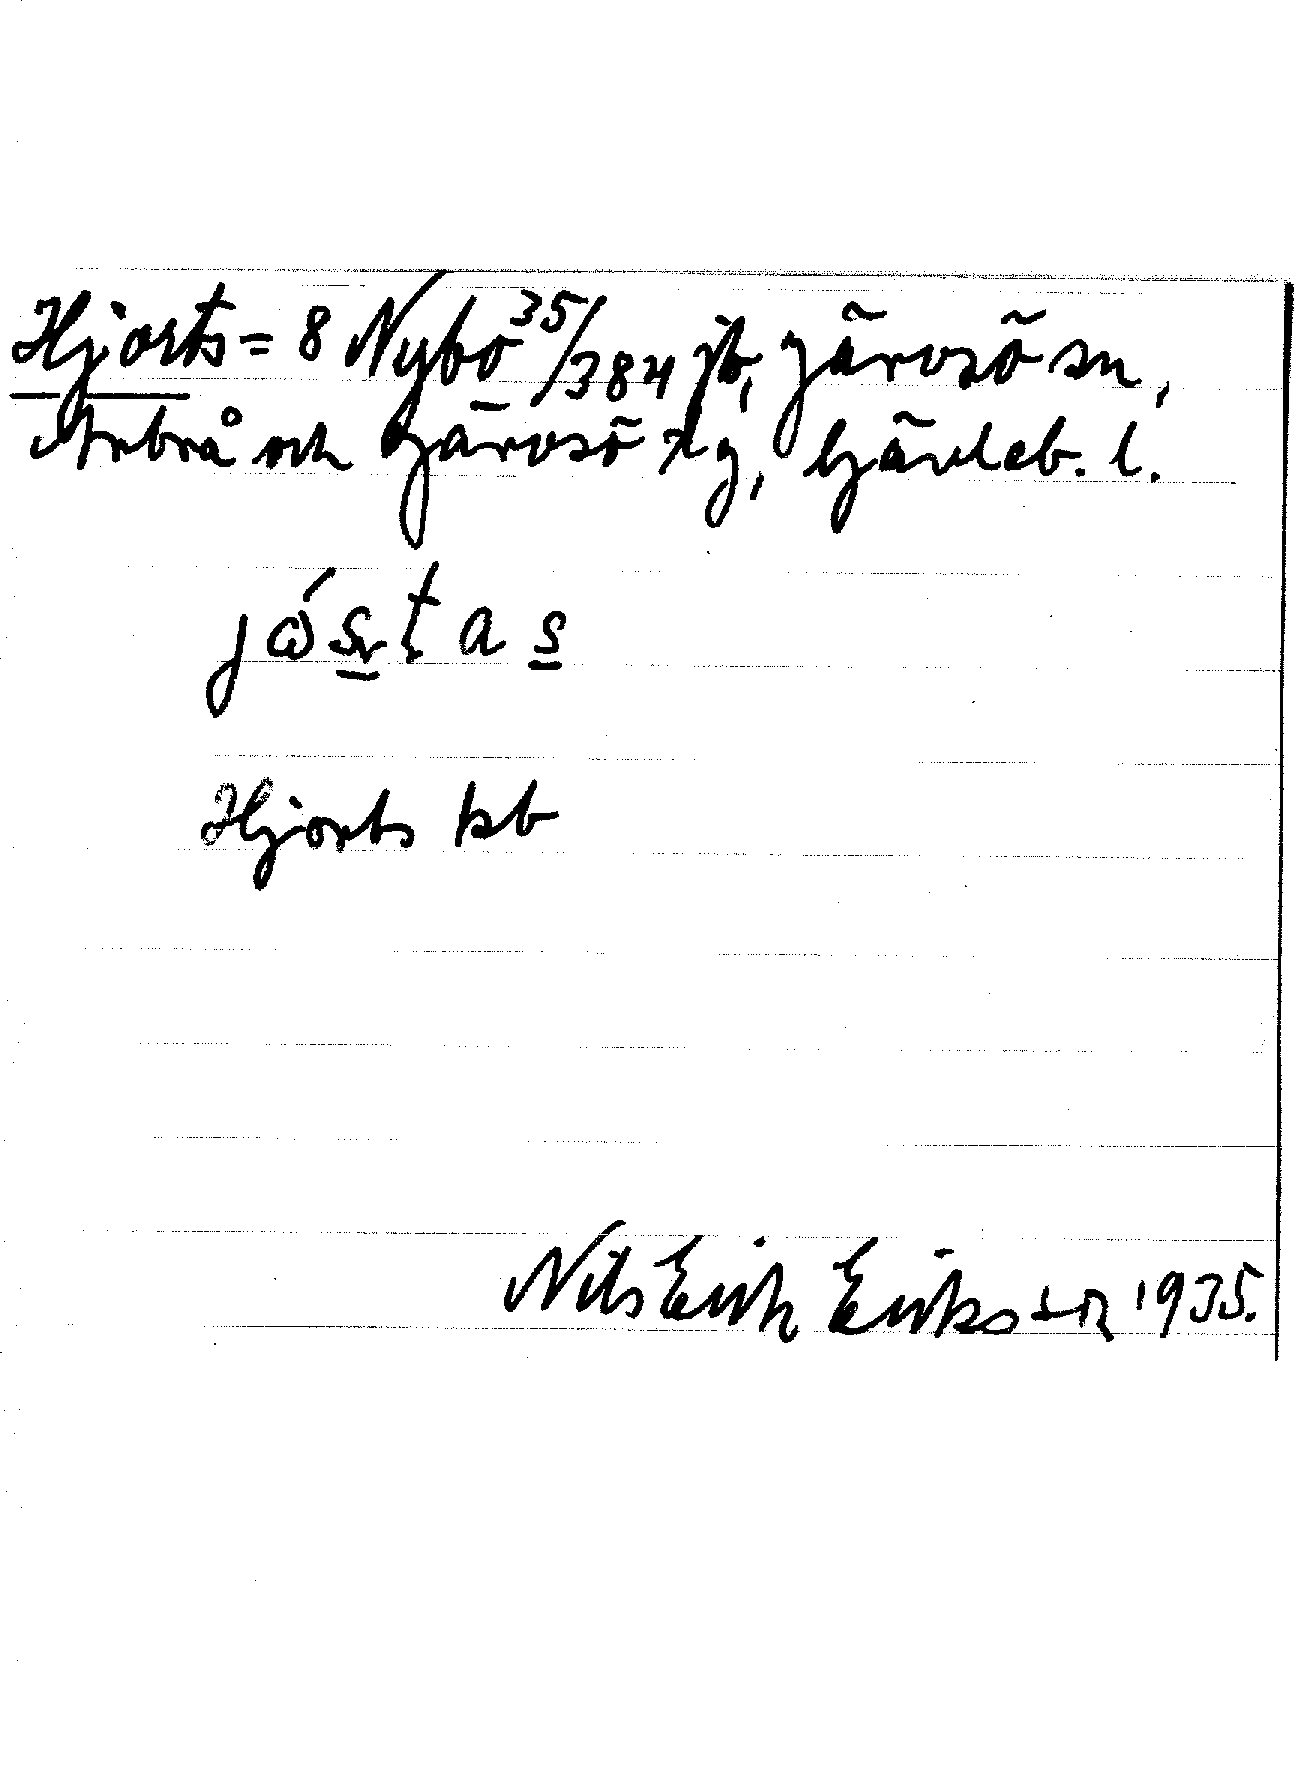 Hjorts = 8 Nybo 35/384 jb, Järvsö sn,
Arbrå och Järvsö tg, Gävleb. l.
Hjorts kb
Nils Erik Eriksson 1935.